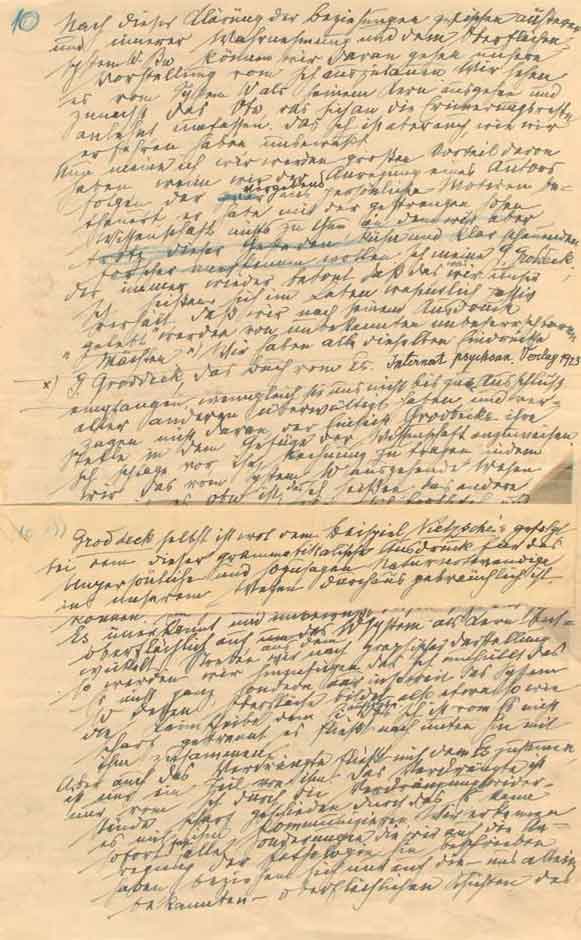 10
Nach dieser Klärung der Beziehungen zwischen äußerer
und innerer Wahrnehmung und dem Oberflächen-
system W Bw können wir daran gehen unsere
Vorstellung vom Ich auszubauen Wir sehen
es vom System W als seinem Kern ausgehen und
zunächst das Vbw das sich an die Erinnerungsreste
anlehnt umfassen. Das Ich ist aber auch, wie wir
erfahren haben unbewußt
Nun meine ich wir werden großen Vorteil davon
haben wenn wir der Anregung eines Autors
folgen der vergebens aus persönlichen Motiven be-
theuert er habe mit der gestrengen hohen
Wissenschaft nichts zu thun in dem wir aber
trotz dieser und klar sehenden
Forscher wollen Ich meine G. Groddeck,
der immer wieder betont daß das was wir unser
Ich heißen sich im Leben wesentlich passiv
verhält daß wir nach seinem Ausdruck
gelebt werden von unbekannten unbeherrschbaren
Mächten x) Wir haben alle dieselben Eindrücke
x) G. Groddeck, das Buch vom Es. Internat. psychoan. Verlag 1923
empfangen wenngleich sie uns nicht bis zum Ausschluß
aller anderen überwältigt haben und ver-
zagen nicht daran der Einsicht Groddecks ihre
Stelle in dem Gefüge der Wissenschaft anzuweisen
Ich schlage vor ihr Rechnung zu tragen indem
wir das vom System W ausgehende Wesen
ist das Ich heißen das andere
Groddeck selbst ist wol dem Beispiel Nietzsche's gefolgt
bei dem dieser grammatikalische Ausdruck für das
Unpersönliche und sozusagen Naturnotwendige
in unserem Wesen durchaus gebräuchlich ist
können.
Es unerkannt und unbewußt
oberflächlich auf aus dem W System als Kern ent-
wickelt. Streben wir nach graphischer Darstellung
so werden wir hinzufügen das Ich umhüllt das
Es nicht ganz sondern nur insoweit das System
W dessen Oberfläche bildet also etwa so wie
die Keimscheibe dem Ei aufsitzt Ich ist vom Es nicht
scharf getrennt es fließt nach unten hin mit
ihm zusammen.
Aber auch das Verdrängte fließt mit dem Es zusammen,
ist nur ein Teil von ihm Das Verdrängte ist
nur vom Ich durch die Verdrängungswider-
stände scharf geschieden durch das Es kann
es mit ihm kommuniziren. Wir erkennen
sofort alle Sonderungen die wir auf die An-
regung der Pathologie hin beschrieben
haben beziehen sich nur auf die – uns allein
bekannten – oberflächlichen Schichten des